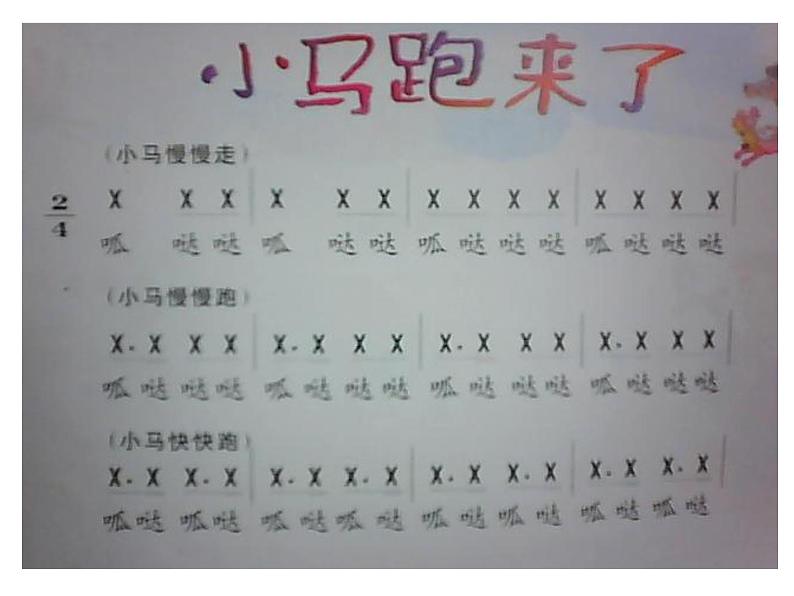 小马跑来了
（小马慢慢走）
2/4 X X X | X X X | X X X X | X X X X |
呱 哒哒 呱 哒哒 呱哒哒哒 呱哒哒哒
（小马慢慢跑）
X. X X X | X. X X X | X. X X X | X. X X X |
呱哒哒哒 呱哒哒哒 呱哒哒哒 呱哒哒哒
（小马快快跑）
X. X X. X | X. X X. X | X. X X. X | X. X X. X |
呱哒 呱哒 呱哒 呱哒 呱哒 呱哒 呱哒 呱哒